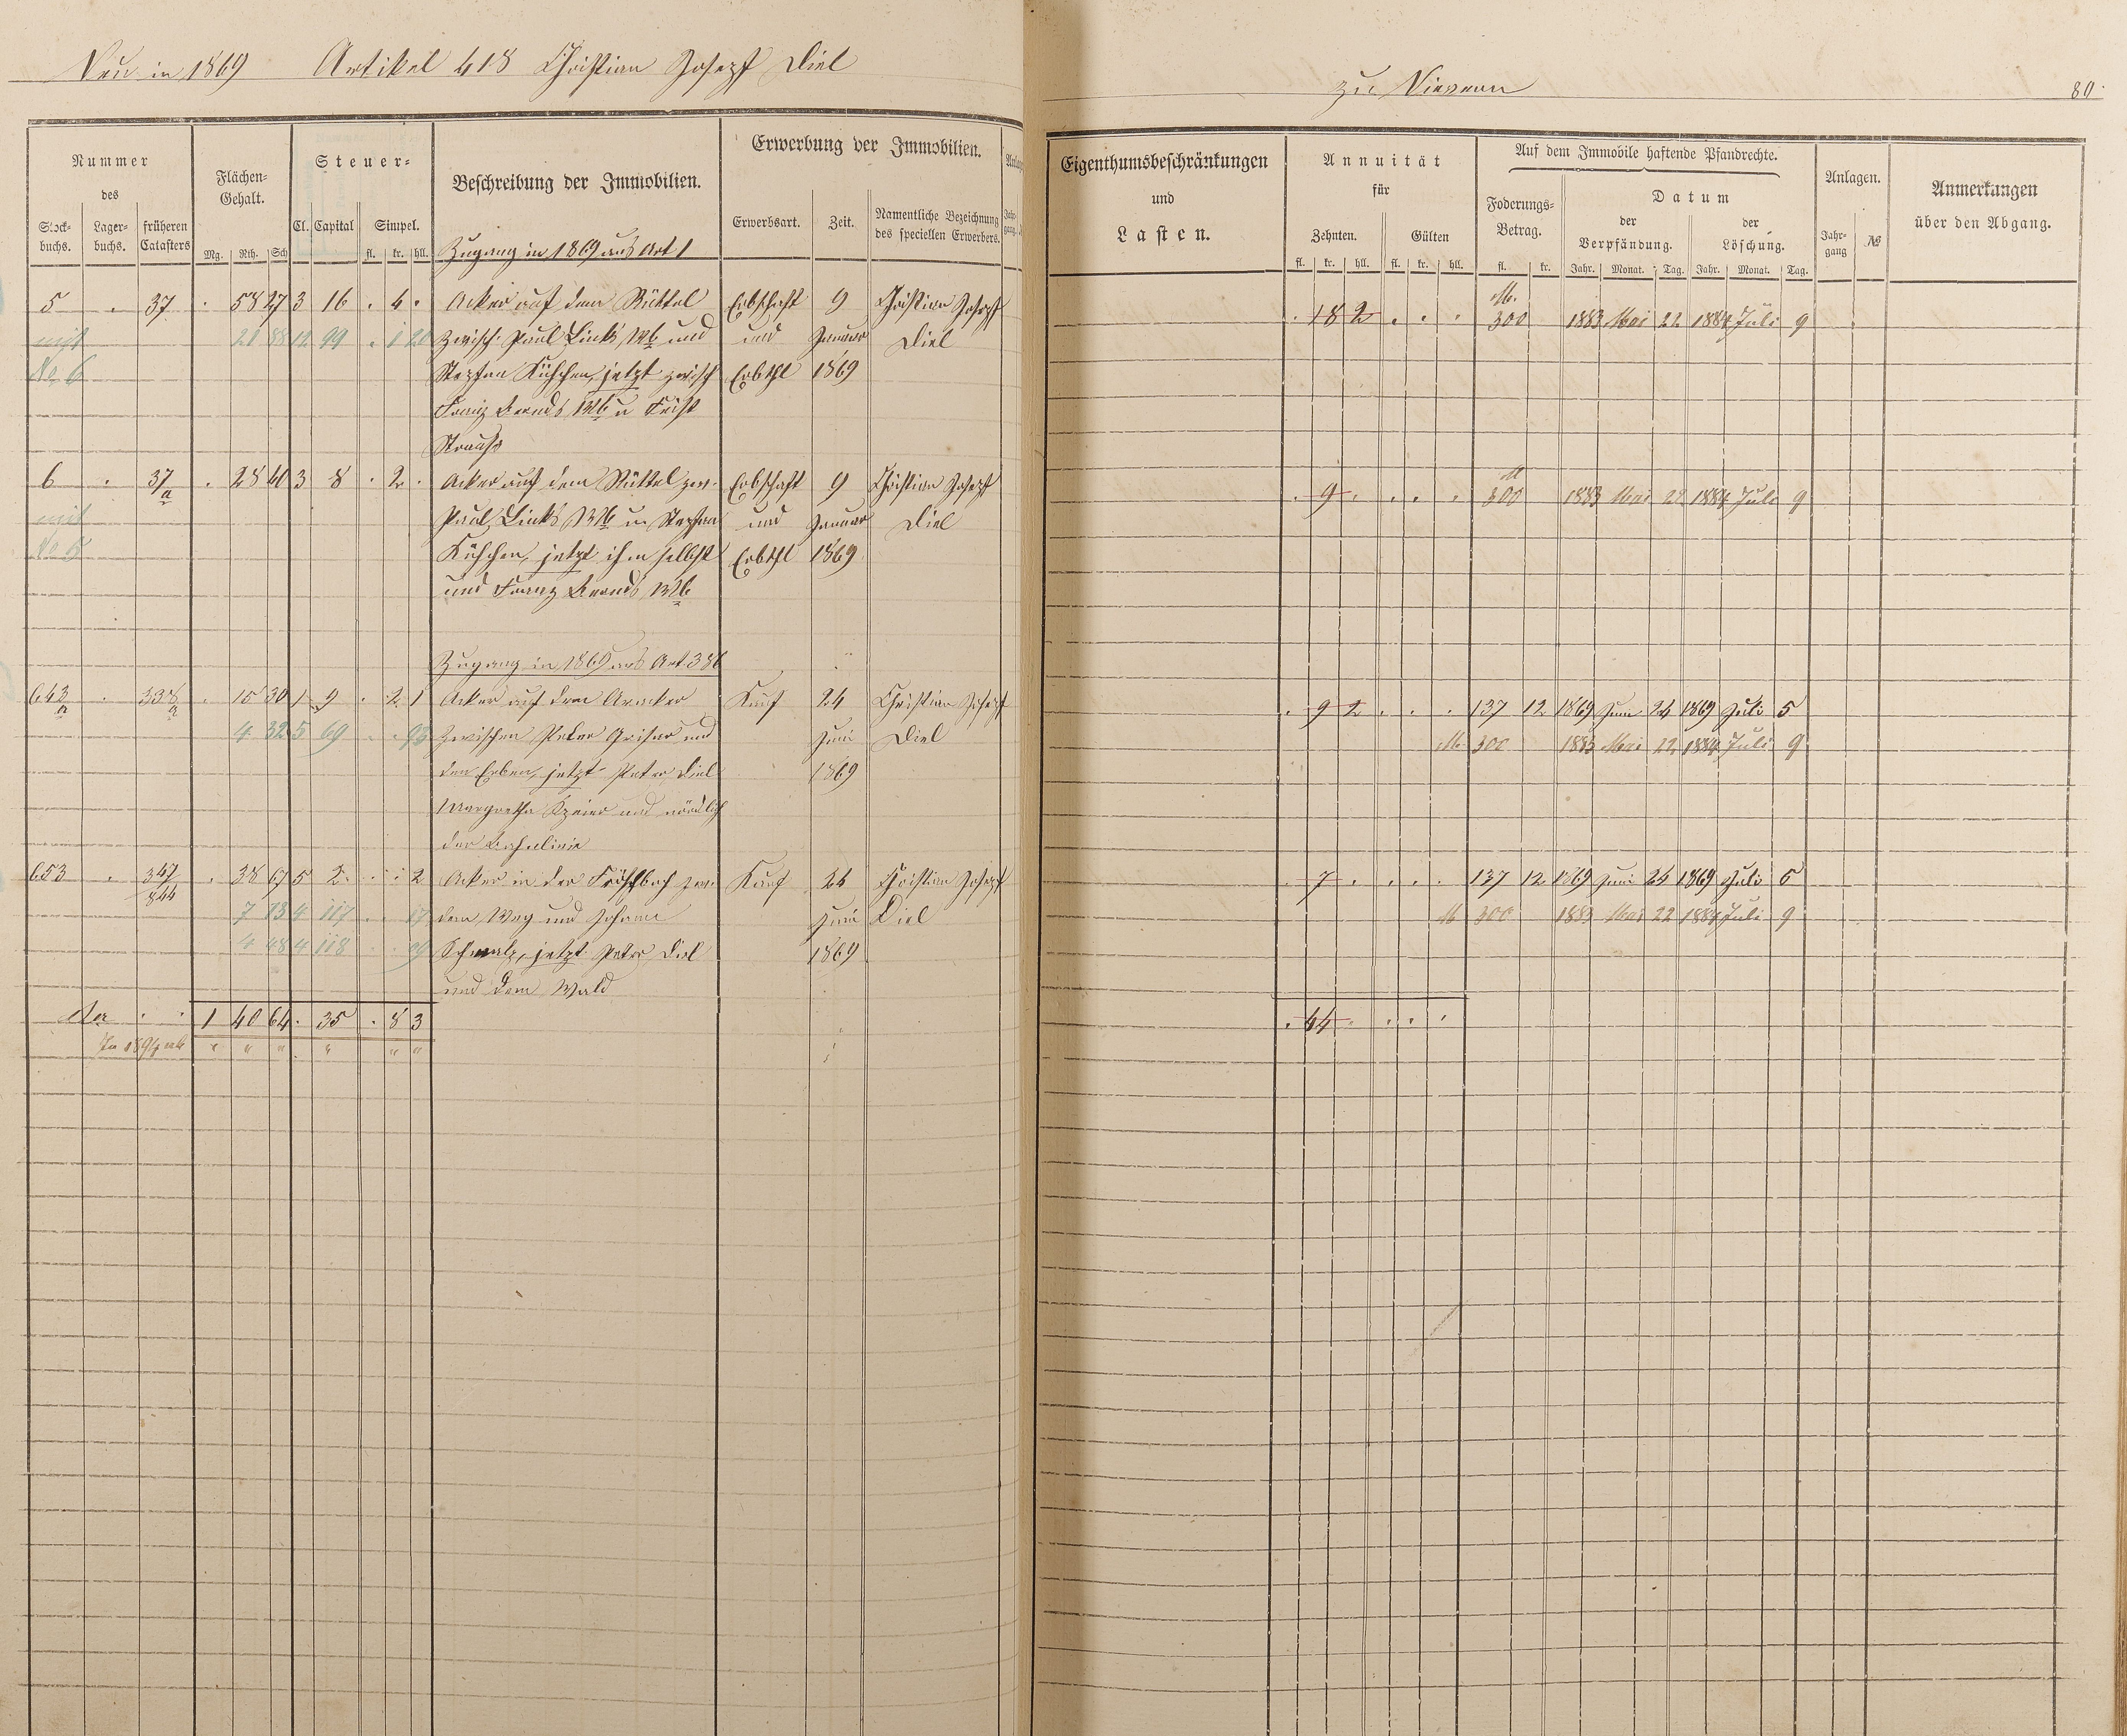 Neu in 1869 Artikel 418 Christian Josepf Diel
zu Nievern
80.
Nummer
des
Stock-
buchs.
Lager-
buchs.
früheren
Catasters
Flächen-
Gehalt.
Mg. Rth. Sch
Steuer-
Cl. Capital Simpel.
fl. kr. hll.
Beschreibung der Immobilien.
Erwerbung der Immobilien.
Erwerbsart. Zeit. Namentliche Bezeichnung
des speciellen Erwerbers.
Eigenthumsbeschränkungen
und
Lasten.
Annuität
für
Zehnten. Gülten
fl. kr. hll. fl. kr. hll.
Auf dem Immobile haftende Pfandrechte.
Foderungs-
Betrag.
fl. kr.
Datum
der
Verpfändung.
der
Löschung.
Jahr. Monat. Tag. Jahr. Monat. Tag.
Anlagen.
Jahr-
gang
№
Anmerkungen
über den Abgang.
Zugang in 1869 aus Art 1
5 . 37 . 58 27 3 16 . 4 . Acker auf dem Rüttel Erbschaft 9 Christian Josepf . 18 2 . . . M. 300 1883 Mai 22 1884 Juli 9
mit 21 88 12 99 . 1 20 zwisch. Paul Links Wb und und Januar Diel
No. 6 Stepfan jetzt zwisch Erbthl 1869
Franz Wb u
Strauß
6 . 37a . 28 40 3 8 . 2 . Acker auf dem Rüttel zw. Erbschaft 9 Christian Josepf . 9 . . . . M 300 1883 Mai 22 1884 Juli 9
mit Paul Links Wb u Stepfan und Januar Diel
No 5 jetzt ihm selbst Erbthl 1869
und Franz Wb
Zugang in 1869 aus Art 386
643a . 338a . 15 30 1 9 . 2 1 Acker auf dem Kauf 24 Christian Josepf . 9 2 . . . 137 12 1869 Juni 24 1869 Juli 5
4 32 5 69 . . 93 zwischen Peter und Juni Diel M 300 1883 Mai 22 1884 Juli 9
den Erben, jetzt Peter Diel 1869
Margretha und nördlich
der Bahnlinie
653 . 347 . 38 67 5 2 . . 2 Acker in der zw. Kauf 24 Christian Josepf . 7 . . . . 137 12 1869 Juni 24 1869 Juli 5
844
7 13 4 117 . . 17 dem Weg und Johann Juni Diel M 300 1883 Mai 22 1884 Juli 9
4 48 4 118 . . 96 Schmalz, jetzt Peter Diel 1869
und dem Wald
. . 1 40 64 . 35 . 8 3 . 44 . . . .
In 1894 ab " " " " " "